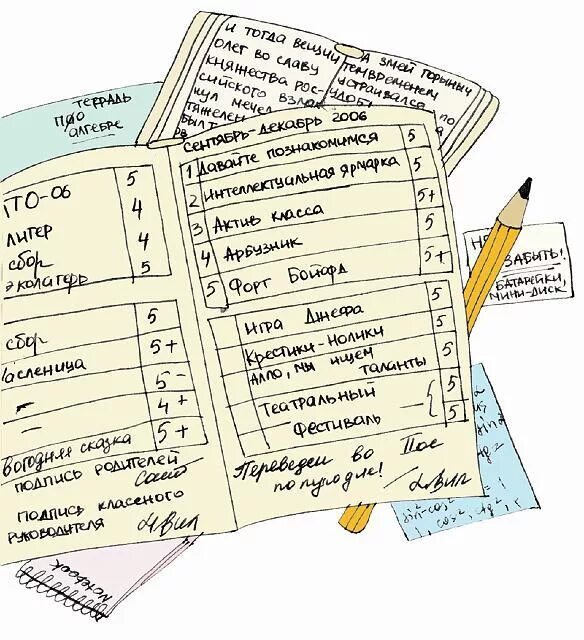 и тогда вещий
Олег во славу
княжества рос-
сийского взма
нул мечел
тяжелен
был т
А змей горыныч
тем временем
устраивался по
удоб
тетрадь
по
алгебре
сентябрь-декабрь 2006
1 Давайте познакомимся 5
2 Интеллектуальная ярмарка 5
3 Актив класса 5+
4 Арбузник 5
5 Форт Бойард 5+
игра Джефа 5
Крестики-нолики 5
Алло, мы ищем
таланты 5
Театральный 5
фестиваль 5
Переведен во IIое
полугодие!
ЛТО-06 5
литер 4
сбор 4
эколагерь 5
сбор 5
асленица 5+
" 5-
" 4+
вогодняя сказка 5+
подпись родителей
подпись класеного
руководителя
НЕ
ЗАБЫТЬ!
БАТАРЕЙКИ,
МИНИ-ДИСК
sin²-cos²
cos², tg²,
Notebook